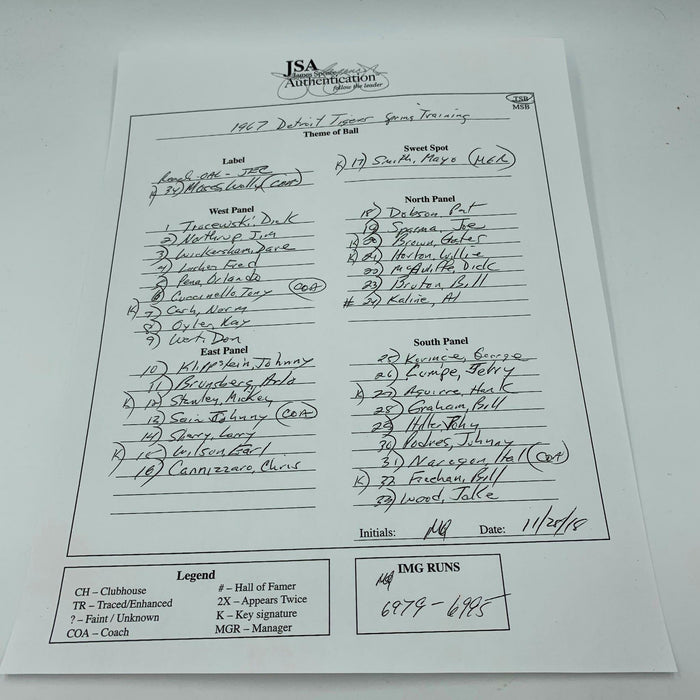 JSA
James Spence
Authentication
follow the leader
TSB
MSB
1967 Detroit Tigers Spring Training
Theme of Ball
Label
Rough OAL - JEC
# 34) Moses, Wally (COA)
Sweet Spot
K 17) Smith, Mayo (MGR)
West Panel
1 Tracewski, Dick
2) Northrup, Jim
3) Wickersham, Dave
4) Lasher, Fred
5) Pena, Orlando
6) Cuccinello, Tony (COA)
K) 7) Cash, Norm
8) Oyler, Ray
9) Wert, Don
North Panel
18) Dobson, Pat
19) Sparma, Joe
K) 20) Brown, Gates
K) 21) Horton, Willie
22) McAuliffe, Dick
23) Bruton, Bill
# 24) Kaline, Al
East Panel
10) Klippstein, Johnny
11) Brunsberg, Arlo
K) 12) Stanley, Mickey
13) Sain, Johnny (COA)
14) Sherry, Larry
K) 15) Wilson, Earl
16) Cannizzaro, Chris
South Panel
25) Korince, George
26) Lumpe, Jerry
K) 27) Aguirre, Hank
28) Graham, Bill
29) Hiller, John
30) Podres, Johnny
31) Naragon, Hal (COA)
K) 32 Freehan, Bill
33) Wood, Jake
Initials: MQ Date: 11/28/18
Legend
CH – Clubhouse
TR – Traced/Enhanced
? – Faint / Unknown
COA – Coach
# – Hall of Famer
2X – Appears Twice
K – Key signature
MGR – Manager
IMG RUNS
MQ
6979 - 6995